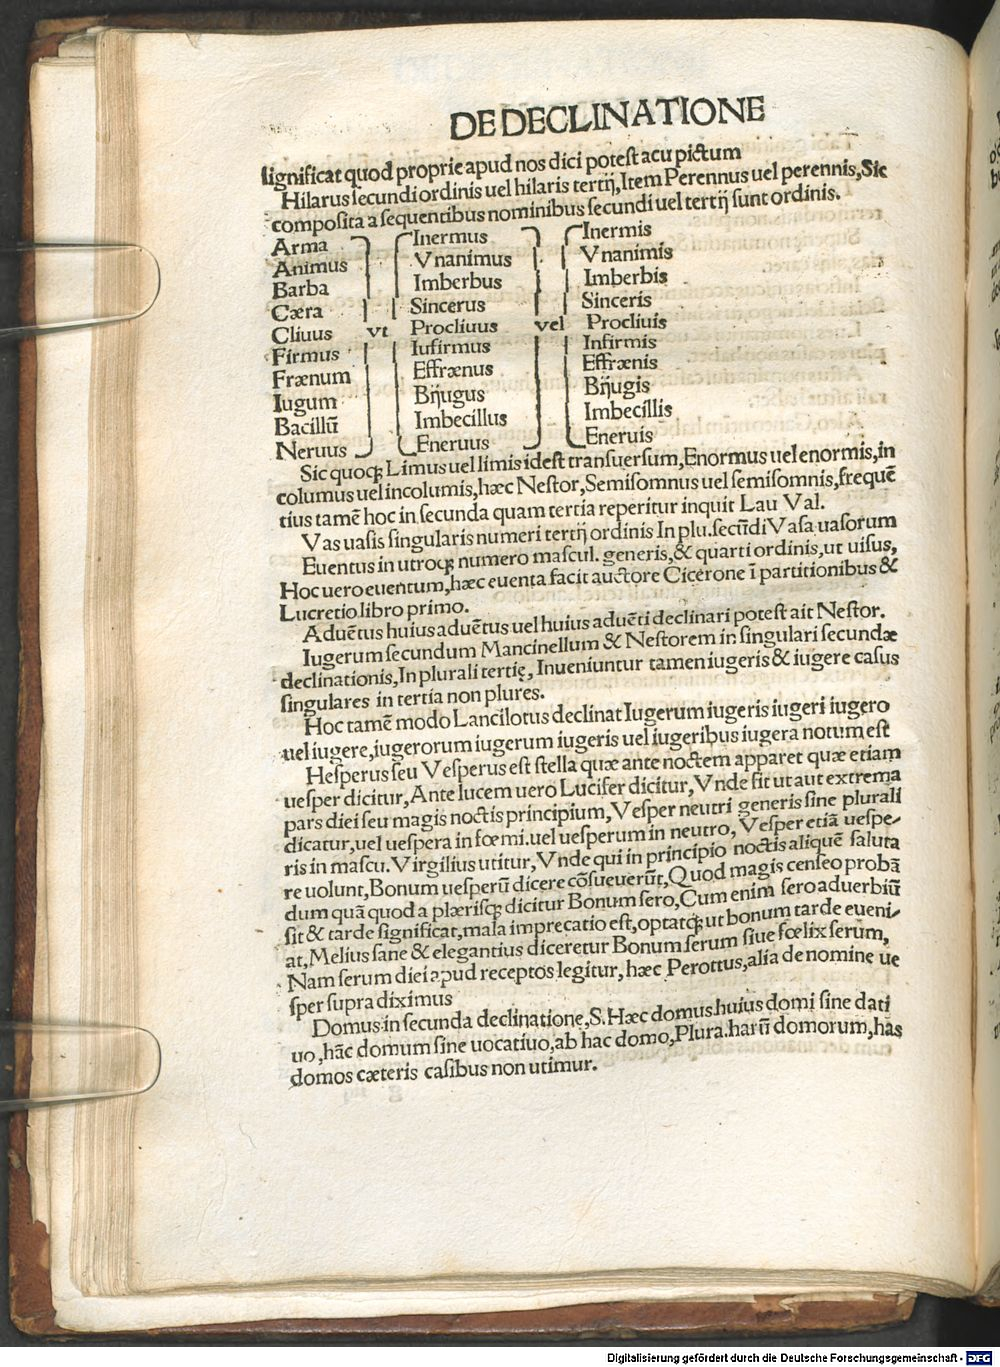 DE DECLINATIONE
ſignificat quod proprie apud nos dici poteſt acu pictum
Hilarus ſecundi ordinis uel hilaris tertij, Item Perennus uel perennis, Sic
compoſita a ſequentibus nominibus ſecundi uel tertij ſunt ordinis.
Arma Inermus Inermis
Animus Vnanimus Vnanimis
Barba Imberbus Imberbis
Cæra Sincerus Sinceris
Cliuus vt Procliuus vel Procliuis
Firmus Iufirmus Infirmis
Frænum Effrænus Effrænis
Iugum Bijugus Bijugis
Bacillū Imbecillus Imbecillis
Neruus Eneruus Eneruis
Sic quoqꝫ Limus uel limis id eſt tranſuerſum, Enormus uel enormis, in
columus uel incolumis, hæc Neſtor, Semiſomnus uel ſemiſomnis, frequē
tius tamē hoc in ſecunda quam tertia reperitur inquit Lau Val.
Vas uaſis ſingularis numeri tertij ordinis In plu. ſecūdi Vaſa uaſorum
Euentus in utroqꝫ numero maſcul. generis, & quarti ordinis, ut uiſus,
Hoc uero euentum, hæc euenta facit auctore Cicerone ī partitionibus &
Lucretio libro primo.
Aduētus huius aduētus uel huius aduēti declinari poteſt ait Neſtor.
Iugerum ſecundum Mancinellum & Neſtorem in ſingulari ſecundæ
declinationis, In plurali tertię, Inueniuntur tamen iugeris & iugere caſus
ſingulares in tertia non plures.
Hoc tamē modo Lancilotus declinat Iugerum iugeris iugeri iugero
uel iugere, iugerorum iugerum iugeris uel iugeribus iugera notum eſt
Heſperus ſeu Veſperus eſt ſtella quæ ante noctem apparet quæ etiam
ueſper dicitur, Ante lucem uero Lucifer dicitur, Vnde fit ut aut extrema
pars diei ſeu magis noctis principium, Veſper neutri generis ſine plurali
dicatur, uel ueſpera in fœmi. uel ueſperum in neutro, Veſper etiā ueſpe/
ris in maſcu. Virgilius utitur, Vnde qui in principio noctis aliquē ſaluta
re uolunt, Bonum ueſperū dicere cōſueuerūt, Quod magis cenſeo probā
dum quā quod a plæriſqꝫ dicitur Bonum ſero, Cum enim ſero aduerbiū
ſit & tarde ſignificat, mala imprecatio eſt, optatqꝫ ut bonum tarde eueni/
at, Melius ſane & elegantius diceretur Bonum ſerum ſiue fœlix ſerum,
Nam ſerum diei apud receptos legitur, hæc Perottus, alia de nomine ue
ſper ſupra diximus
Domus in ſecunda declinatione, S. Hæc domus huius domi ſine dati
uo, hāc domum ſine uocatiuo, ab hac domo, Plura. harū domorum, has
domos cæteris caſibus non utimur.
Digitalisierung gefördert durch die Deutsche Forschungsgemeinschaft - DFG